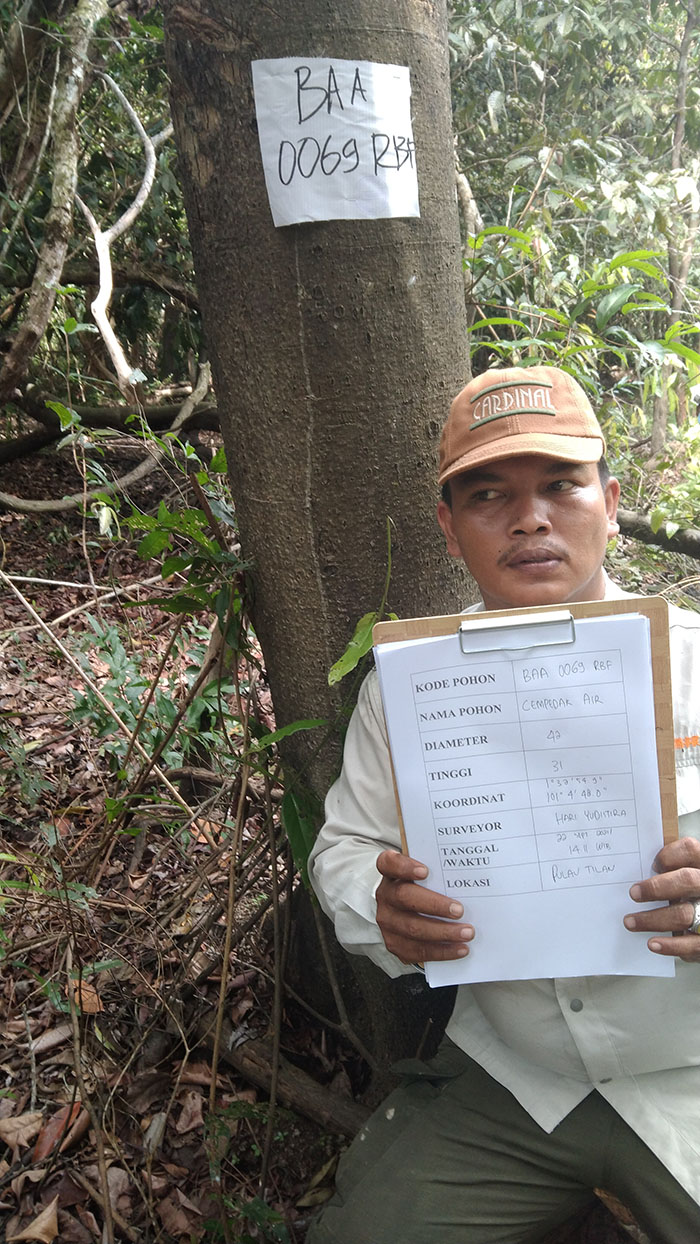 BAA
0069 RBF
CARDINAL
KODE POHON BAA 0069 RBF
NAMA POHON CEMPEDAK AIR
DIAMETER 42
TINGGI 31
KOORDINAT
101° 4' 48.0"
SURVEYOR HARI YUDISTIRA
TANGGAL 22
/WAKTU 14.11 WIB
LOKASI PULAU TILAN